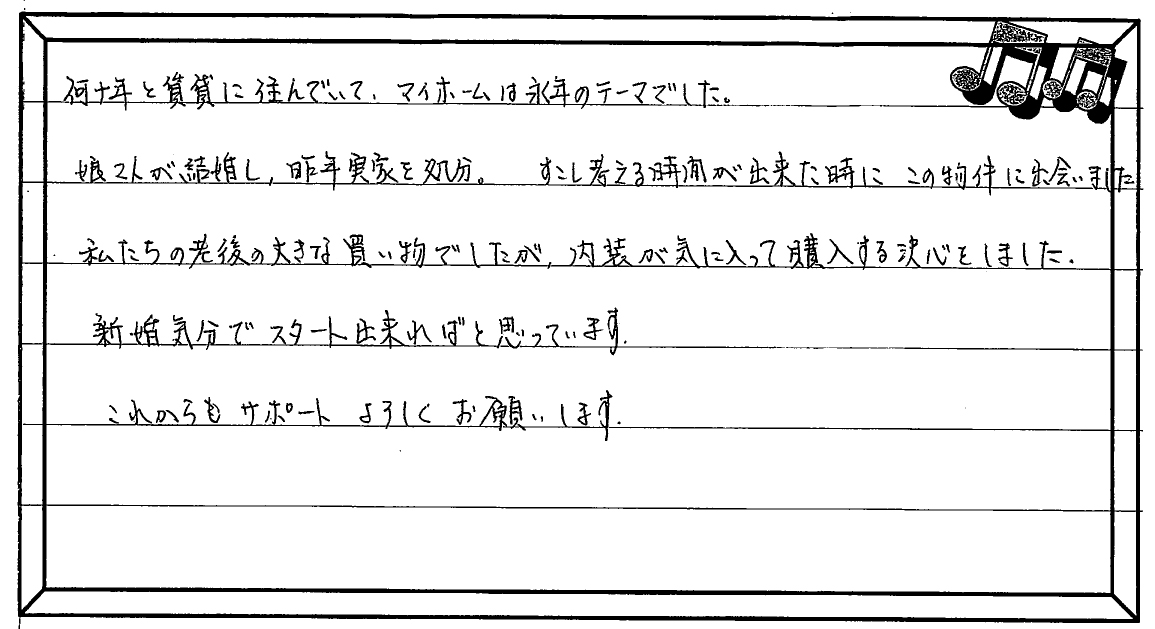 何十年と賃貸に住んでいて、マイホームは永年のテーマでした。
娘2人が結婚し、昨年実家を処分。 すこし考える時間が出来た時に この物件に出会いました
私たちの老後の大きな買い物でしたが、内装が気に入って購入する決心をしました.
新婚気分でスタート出来ればと思っています.
これからも サポート よろしく お願いします.